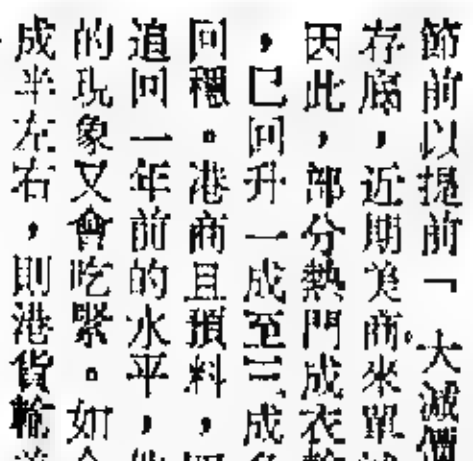 節前以提前「大減價
存底,近期美商來單
因此,部分熱門成衣輸
,已回升一成至三成
回穩。港商且預料,
追回一年前的水平,
的現象又會吃緊。如
成半左右,則港貨輸